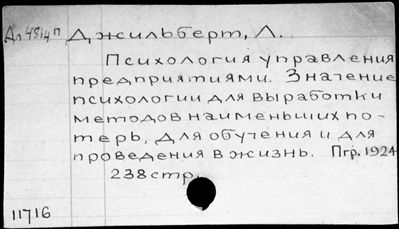 Дл 4814п Джильберт, Л.
Психология управления
предприятиями. Значение
психологии для выработки
методов наименьших по-
терь, для обучения и для
проведения в жизнь. Пгр. 1924
238 стр.
11716